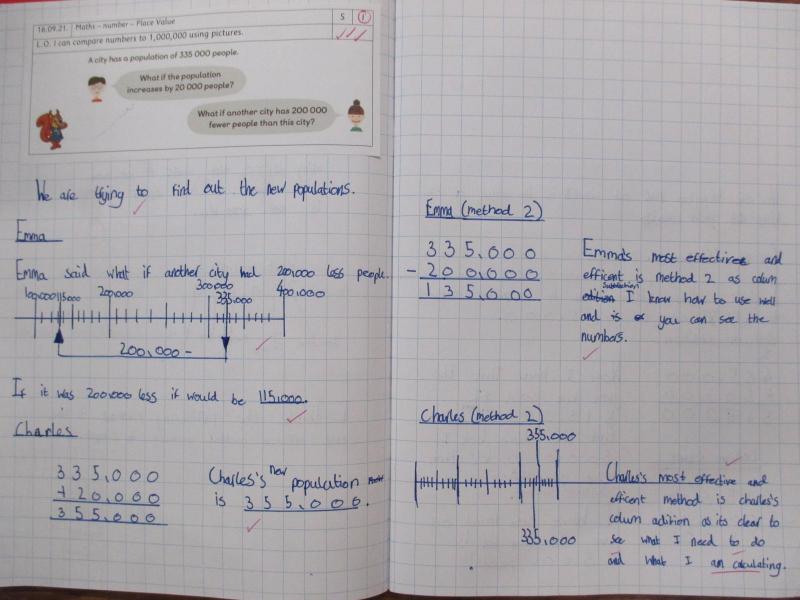 16.09.21. Maths - number - Place Value S 1
L.O. I can compare numbers to 1,000,000 using pictures.
A city has a population of 335 000 people.
What if the population
increases by 20 000 people?
What if another city has 200 000
fewer people than this city?
We are trying to find out the new populations.
Emma
Emma said what if another city had 200,000 less people.
100,000 115,000 200,000 300,000 335,000 400,000
200,000 -
If it was 200,000 less if would be 115,000.
Charles
335,000
+20,000
355,000
Charles's new population
is 355,000.
Emma (method 2)
335,000
- 200,000
135,000
Emma's most effective and
efficent is method 2 as colum
subtraction I know how to use well
and is or you can see the
numbers.
Charles (method 2)
355,000
335,000
Charles's most effective and
efficent method is charles's
colum adition as its clear to
see what I need to do
and what I am calculating.